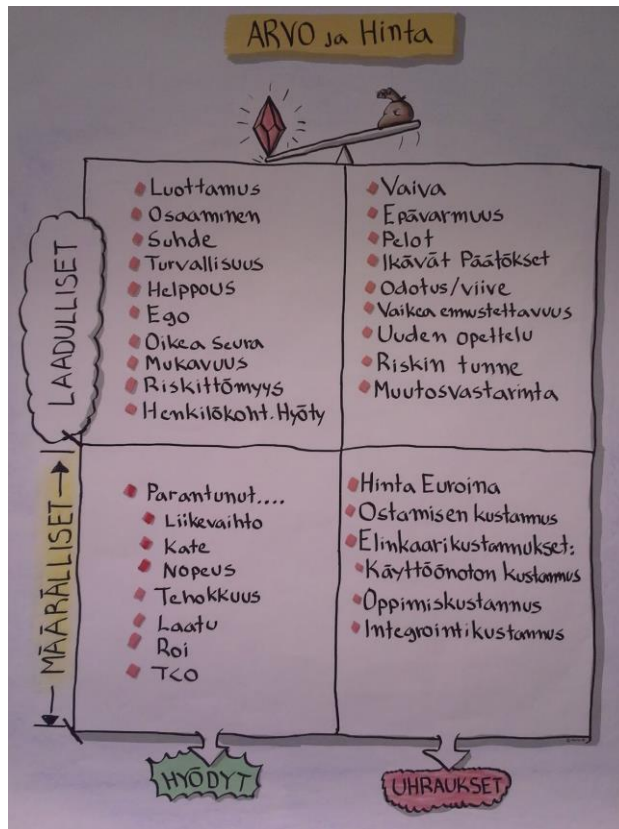 ARVO ja Hinta
LAADULLISET
Luottamus
Osaaminen
Suhde
Turvallisuus
Helppous
Ego
Oikea Seura
Mukavuus
Riskittömyys
Henkilökoht. Hyöty
Vaiva
Epävarmuus
Pelot
Ikävät Päätökset
Odotus/viive
Vaikea ennustettavuus
Uuden opettelu
Riskin tunne
Muutosvastarinta
MÄÄRÄLLISET
Parantunut....
Liikevaihto
Kate
Nopeus
Tehokkuus
Laatu
Roi
TCO
Hinta Euroina
Ostamisen kustannus
Elinkaarikustannukset:
Käyttöönoton kustannus
Oppimiskustannus
Integrointikustannus
HYÖDYT
UHRAUKSET